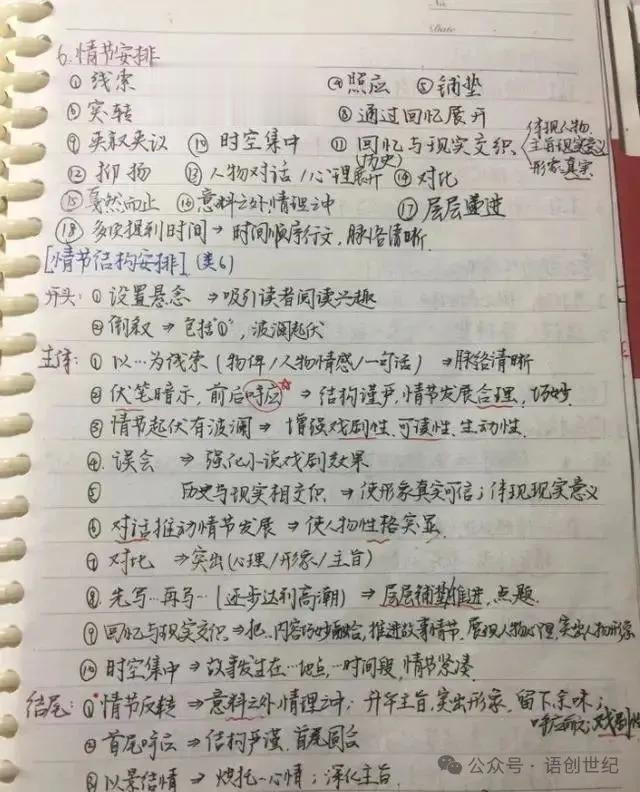 No
Date
6.情节安排
①线索 ④照应 ⑤铺垫
⑥突转 ⑧通过回忆展开
⑨夹叙夹议 ⑩时空集中 ⑪回忆与现实交织 体现人物
(历史) 主旨现实意义
形象真实
⑫抑扬 ⑬人物对话/心理展开 ⑭对比
⑮戛然而止 ⑯意料之外,情理之中 ⑰层层递进
⑱多次提到时间→时间顺序行文,脉络清晰.
[情节结构安排](类6)
开头:①设置悬念 ⇒吸引读者阅读兴趣
②倒叙 ⇒包括"①",波澜起伏
主体:①以…为线索(物件/人物情感/一句话) ⇒脉络清晰
②伏笔暗示,前后呼应 ⇒结构谨严,情节发展合理,巧妙.
③情节起伏有波澜⇒增强戏剧性,可读性.生动性.
④误会 ⇒强化小说戏剧效果
⑤ 历史与现实相交织 ⇒使形象真实可信;体现现实意义
⑥对话推动情节发展⇒使人物性格突显.
⑦对比 ⇒突出(心理/形象/主旨)
⑧先写…再写…(逐步达到高潮)⇒层层铺垫推进,点题.
⑨回忆与现实交织⇒把…内容巧妙融合,推进故事情节,展现人物心理,突出人物形象
⑩时空集中⇒故事发生在…地点,…时间段,情节紧凑.
结尾:①情节反转⇒意料之外,情理之中;升华主旨,突出形象,留下余味;
呼应前文;戏剧性
②首尾呼应⇒结构严谨,首尾圆合
③以景结情⇒烘托…心情;深化主旨.
公众号·语创世纪